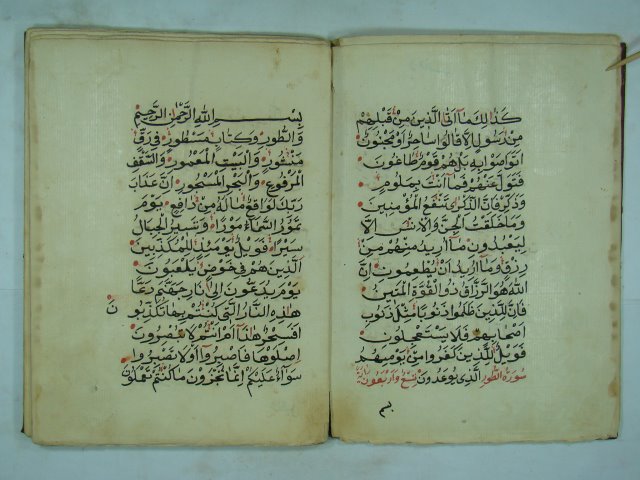 كذلك ما اتى الذين من قبلهم
من رسول الا قالوا ساحر او مجنون
اتواصوا به بل هم قوم طاغون
فتول عنهم فما انت بملوم
وذكر فان الذكرى تنفع المؤمنين
وما خلقت الجن والانس الا
ليعبدون ما اريد منهم من
رزق وما اريد ان يطعمون ان
الله هو الرزاق ذو القوة المتين
فان للذين ظلموا ذنوبا مثل ذنوب
اصحابهم فلا يستعجلون
فويل للذين كفروا من يومهم
الذي يوعدون سورة الطور تسع واربعون اية
بسم الله الرحمن الرحيم
والطور وكتاب مسطور في رق
منشور والبيت المعمور والسقف
المرفوع والبحر المسجور ان عذاب
ربك لواقع ما له من دافع يوم
تمور السماء مورا وتسير الجبال
سيرا فويل يومئذ للمكذبين
الذين هم في خوض يلعبون
يوم يدعون الى نار جهنم دعا
هذه النار التي كنتم بها تكذبون
افسحر هذا ام انتم لا تبصرون
اصلوها فاصبروا او لا تصبروا
سواء عليكم انما تجزون ما كنتم تعملون